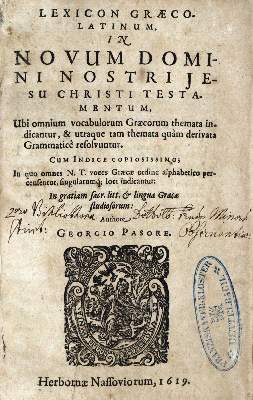 LEXICON GRÆCO-
LATINUM,
IN
NOVUM DOMI-
NI NOSTRI JE-
SU CHRISTI TESTA-
MENTUM,
Ubi omnium vocabulorum Græcorum themata in-
dicantur, & utraque tam themata quàm derivata
Grammaticè resolvuntur.
CUM INDICE COPIOSISSIMO;
In quo omnes N. T. voces Græcæ ordine alphabetico per-
censentur, singularumq; loci indicantur:
In gratiam sacr. litt. & linguæ Græcæ
studiosorum:
Authore
GEORGIO PASORE.
Herbornæ Nassoviorum, 1619.
FRANZISKANER-KLOSTER